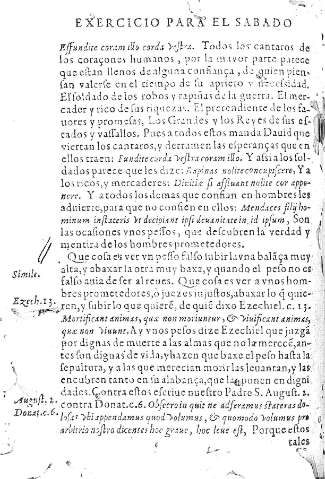 EXERCICIO PARA EL SABADO
Effundite coram illo corda vestra. Todos los cantaros de
los coraçones humanos, por la mayor parte parece
que estan llenos de alguna confiança, de quien pien-
san valerse en el tiempo de su aprieto y necessidad.
El soldado de los robos y rapiñas de la guerra. El mer-
cader y rico de sus riquezas. El pretendiente de los fa-
uores y promesas. Los Grandes y los Reyes de sus es-
tados y vassallos. Pues a todos estos manda Dauid que
viertan los cantaros, y derramen las esperanças que en
ellos traen: Fundite corda vestra coram illo. Y assi a los sol-
dados parece que les dize: Rapinas nolite concupiscere, Y a
los ricos, y mercaderes: Diuitiæ si affluant nolite cor appo-
nere. Y a todos los demas que confian en hombres les
aduierte, para que no confien en ellos: Mendaces filij ho-
minum in stateris vt decipiant ipsi de vanitate in id ipsum, Son
las ocasiones vnos pessos, que descubren la verdad y
mentira de los hombres prometedores.
Que cosa es ver vn pesso falso subir la vna balãça muy
alta, y abaxar la otra muy baxa, y quando el peso no es
falso auia de ser al reues. Que cosa es ver a vnos hom-
bres prometedores, o juezes injustos, abaxar lo q̃ quie-
ren, y subir lo que quierẽ, de quiẽ dixo Ezechiel c. 13.
Mortificant animas, quæ non moriuntur, & viuificant animas,
quæ non viuunt. Ay vnos pesos dize Ezechiel que juzgã
por dignas de muerte a las almas que no la merecẽ, an-
tes son dignas de vida, y hazen que baxe el peso hasta la
sepultura, y a las que merecian morir las leuantan, y las
encumbren tanto en su alabança, que las ponen en digni-
dades. Contra estos escriue nuestro Padre S. August. 2.
contra Donat. c. 6. Obsecro in quit ne adferamus stateras do-
losas vbi appendamus quod volumus, & quomodo volumus pro
arbitrio nostro dicentes hoc graue, hoc leue est, Porque estos
tales
Simile.
Ezech. 13.
August. 2.
Donat. c. 6.